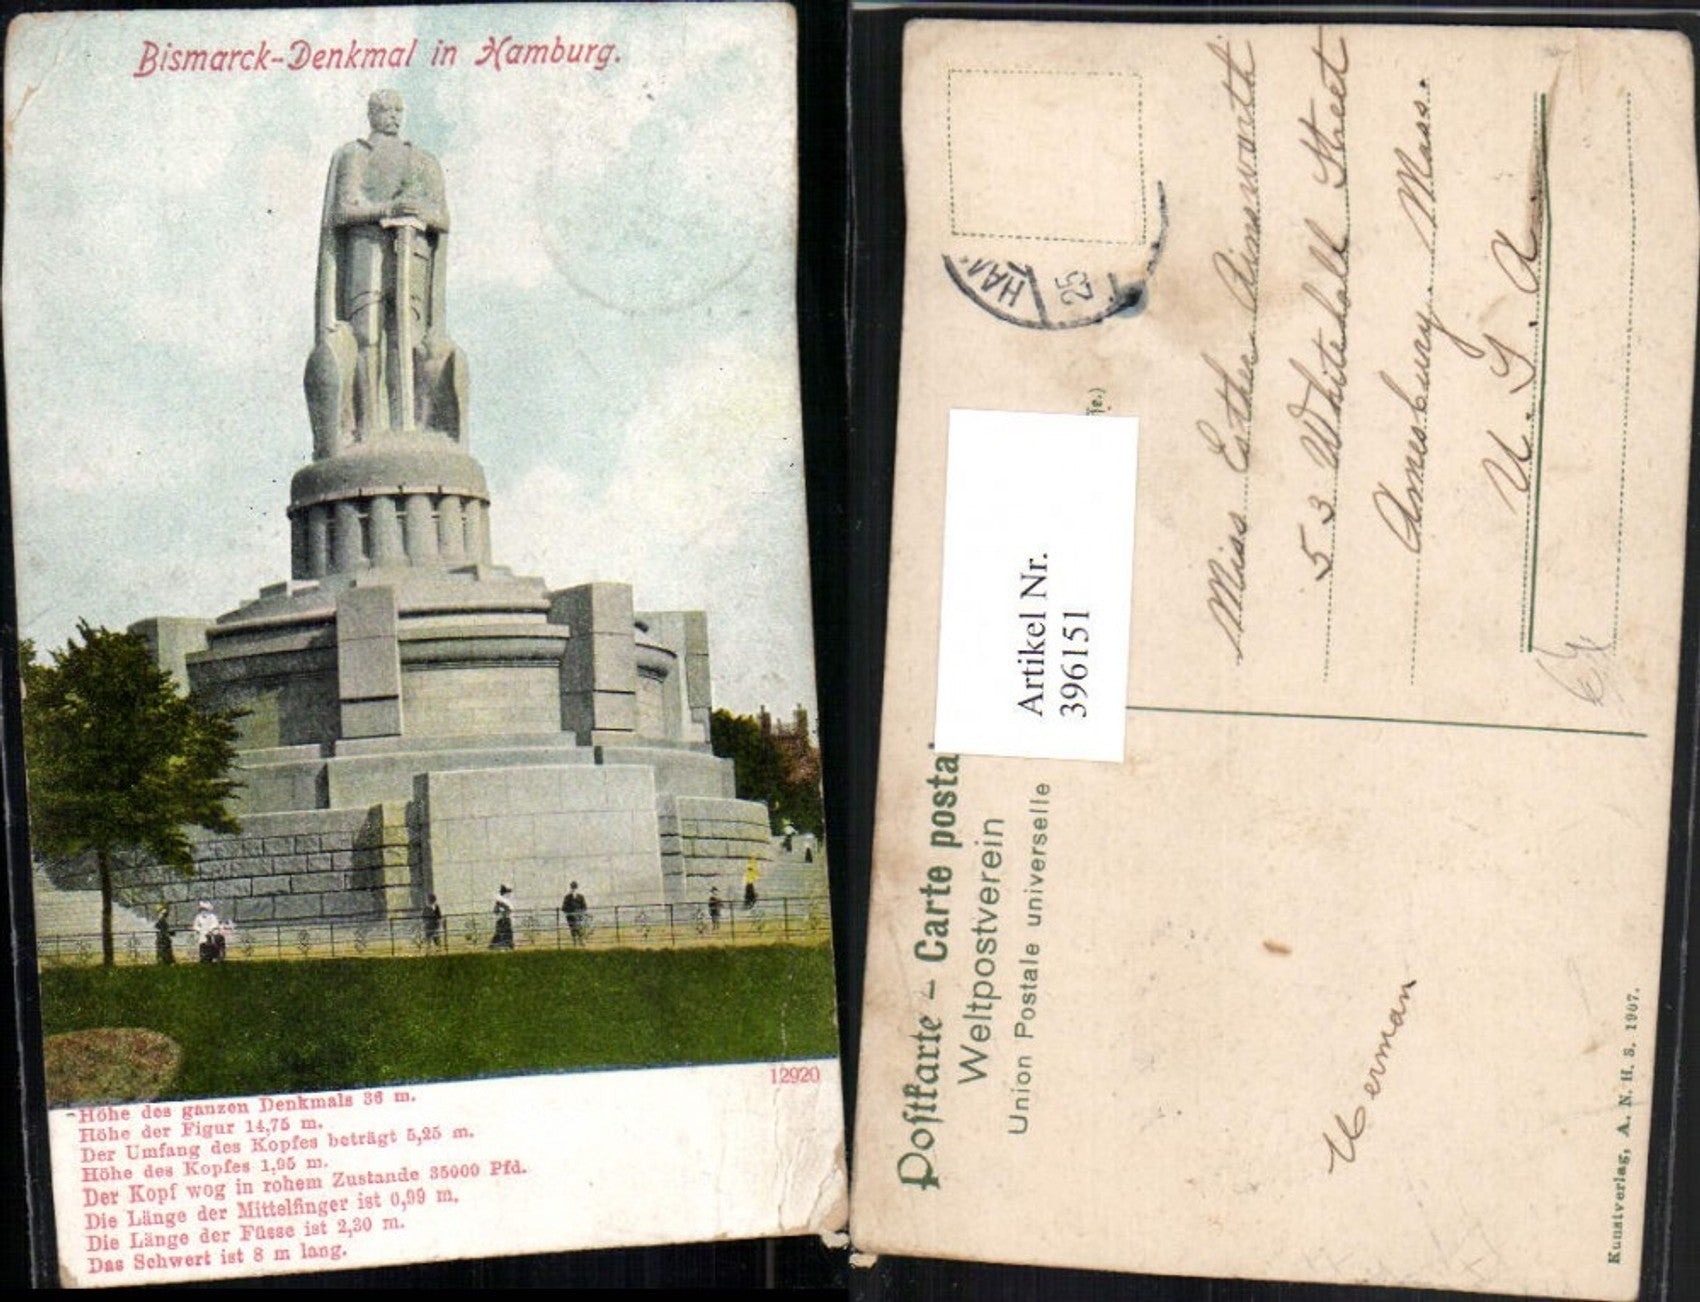 Bismarck-Denkmal in Hamburg.
12920
Höhe des ganzen Denkmals 36 m.
Höhe der Figur 14,75 m.
Der Umfang des Kopfes beträgt 5,25 m.
Höhe des Kopfes 1,95 m.
Der Kopf wog in rohem Zustande 35000 Pfd.
Die Länge der Mittelfinger ist 0,99 m.
Die Länge der Füsse ist 2,20 m.
Das Schwert ist 8 m lang.
Postkarte – Carte posta
Weltpostverein
Union Postale universelle
Artikel Nr.
396151
HAM
25
Miss Esther Ainsworth
53 Whitehall Street
Amesbury. Mass.
U. S. A.
Herman
Kunstverlag, A. N. H. S. 1907.